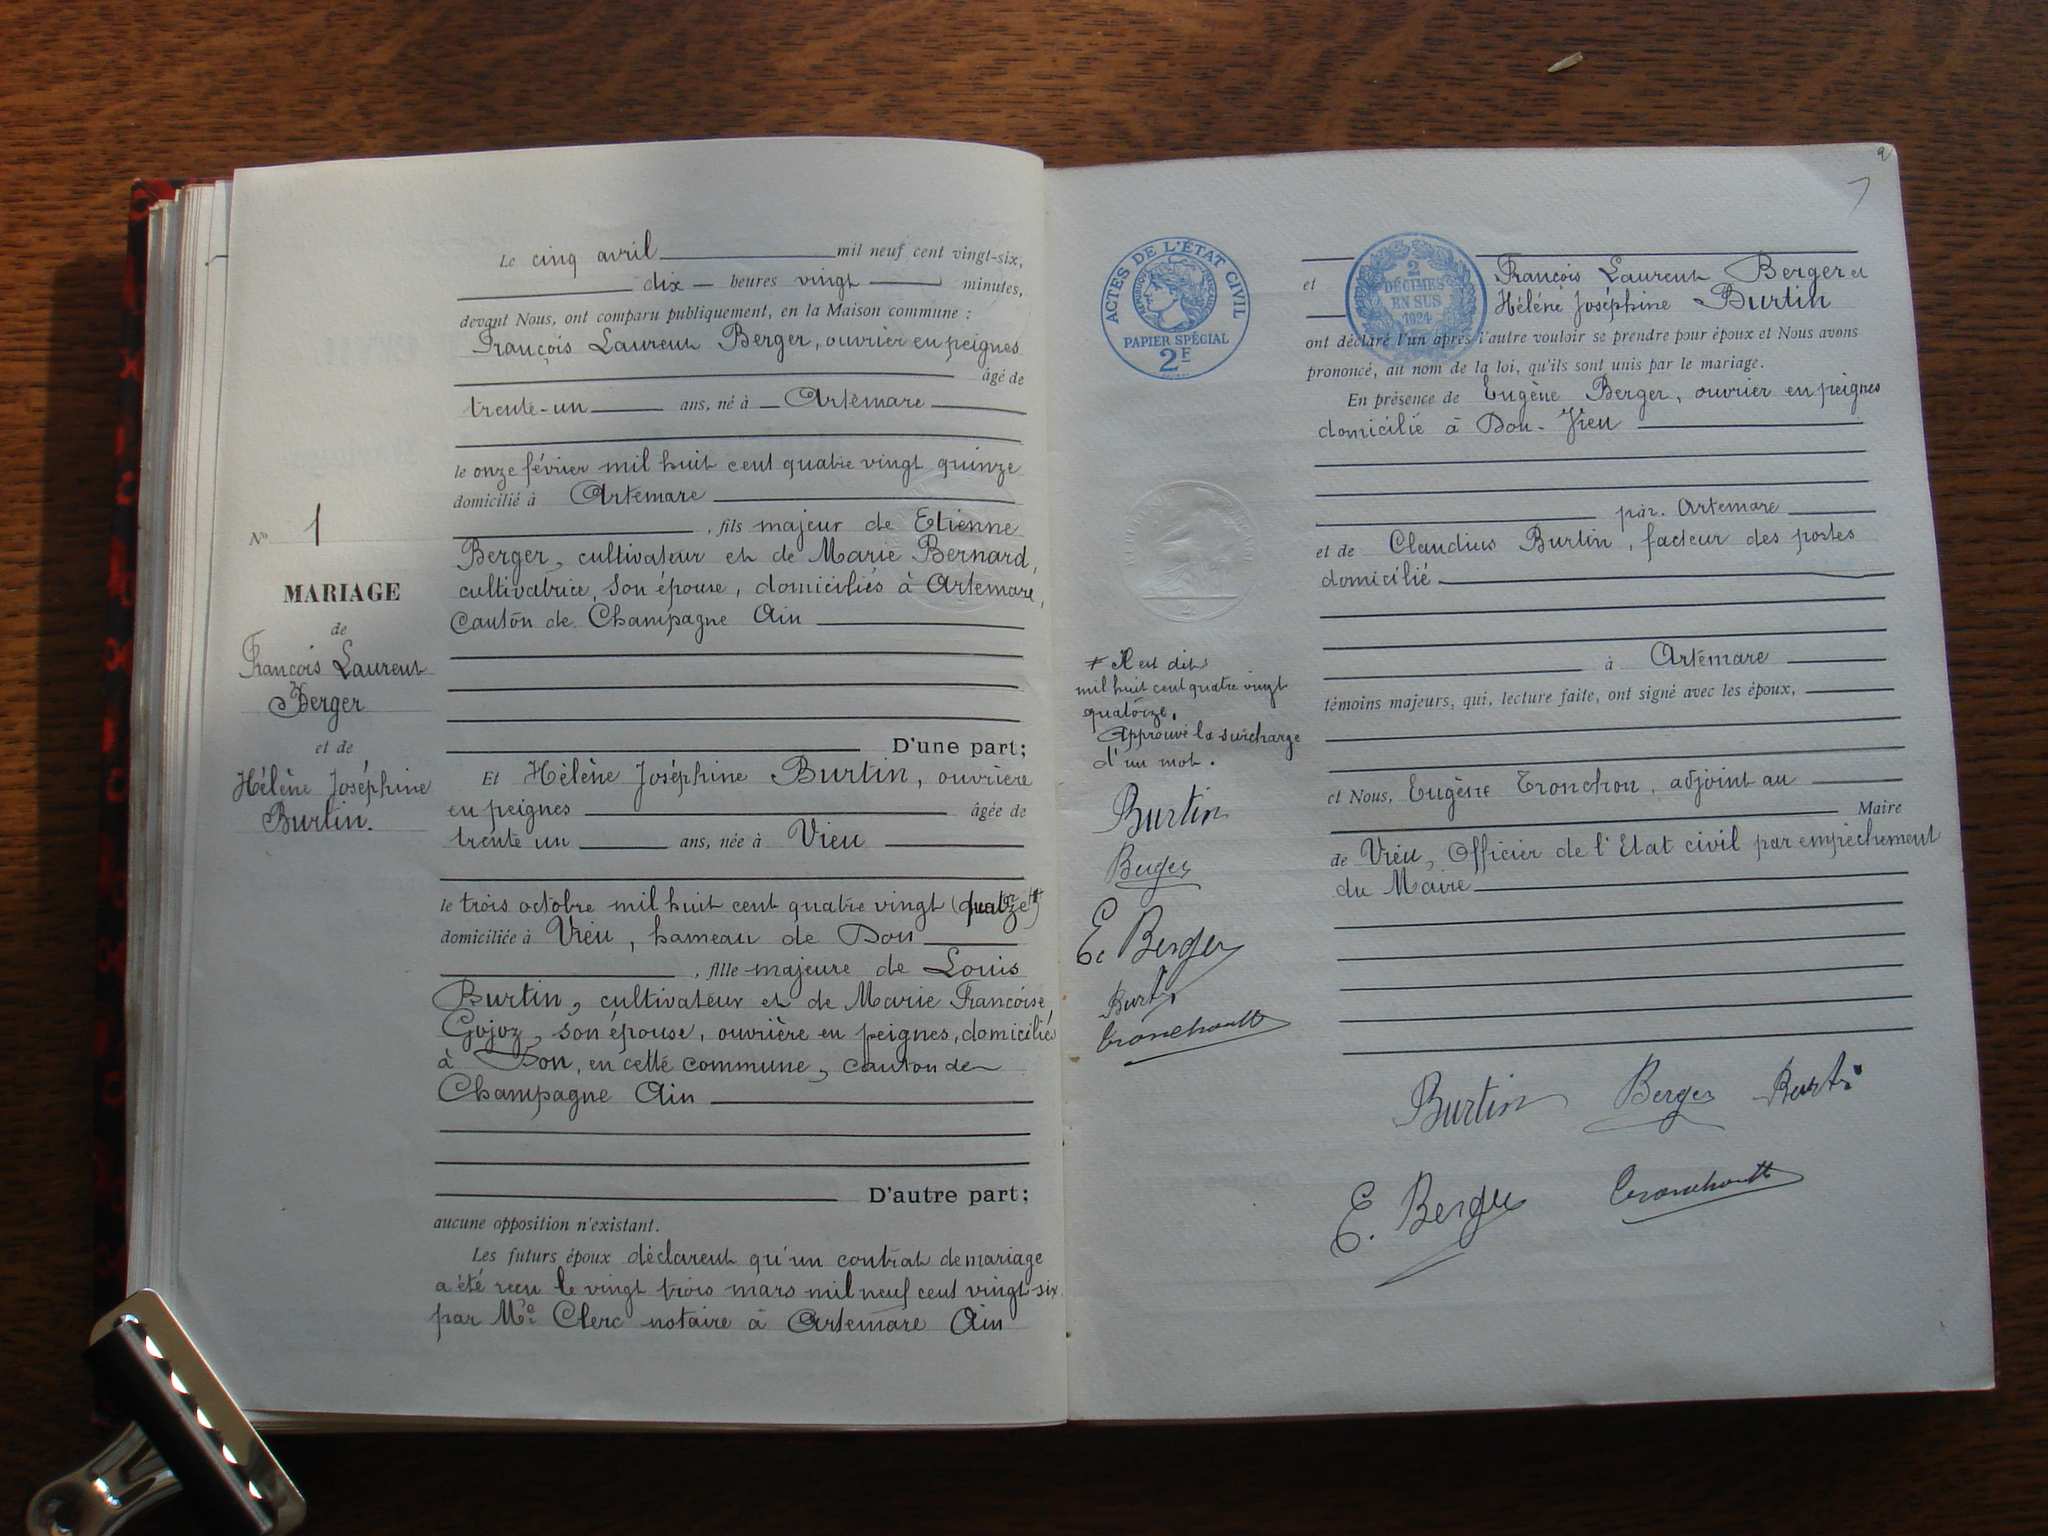 Le cinq avril mil neuf cent vingt-six,
dix heures vingt minutes,
devant Nous, ont comparu publiquement, en la Maison commune :
François Laurent Berger, ouvrier en peignes
âgé de
trente-un ans, né à Artemare
le onze février mil huit cent quatre vingt quinze
domicilié à Artemare
, fils majeur de Etienne
Berger, cultivateur et de Marie Bernard,
cultivatrice, son épouse, domiciliés à Artemare,
Canton de Champagne Ain
D'une part;
Et Hélène Joséphine Burtin, ouvrière
en peignes âgée de
trente un ans, née à Vieu
le trois octobre mil huit cent quatre vingt
domiciliée à Vieu, hameau de Don
, fille majeure de Louis
Burtin, cultivateur et de Marie Françoise
Gojoz, son épouse, ouvrière en peignes, domiciliés
à Don, en cette commune, canton de
Champagne Ain
D'autre part;
aucune opposition n'existant.
Les futurs époux déclarent qu'un contrat de mariage
a été reçu le vingt trois mars mil neuf cent vingt-six
par Me Clerc notaire à Artemare Ain
No 1
MARIAGE
de
François Laurent
Berger
et de
Hélène Joséphine
Burtin.
ACTES DE L'ÉTAT CIVIL
PAPIER SPÉCIAL
2F
2
DÉCIMES
EN SUS
1924
2
et François Laurent Berger et
Hélène Joséphine Burtin
ont déclaré l'un après l'autre vouloir se prendre pour époux et Nous avons
prononcé, au nom de la loi, qu'ils sont unis par le mariage.
En présence de Eugène Berger, ouvrier en peignes
domicilié à Don-Vieu
par Artemare
et de Claudius Burtin, facteur des postes
domicilié
à Artémare
témoins majeurs, qui, lecture faite, ont signé avec les époux,
et Nous, Eugène Tronchon, adjoint au
Maire
de Vieu, Officier de l'Etat civil par empêchement
du Maire
Il est dit
mil huit cent quatre vingt
quatorze.
Approuvé la surcharge
d'un mot.
Burtin
Berger
E. Berger
Burtin
Burtin Berger Burtin
E. Berger